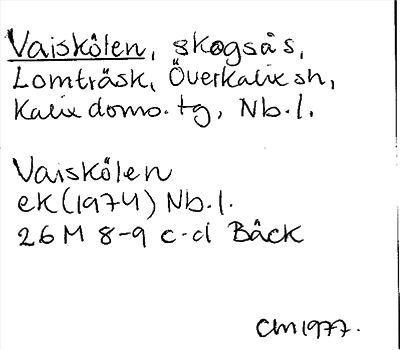 Vaiskölen, skogsås,
Lomträsk, Överkalix sn,
Kalix doms. tg, Nb. l.
Vaiskölen
ek (1974) Nb. l.
26 M 8-9 c-d Bäck
CM 1977.